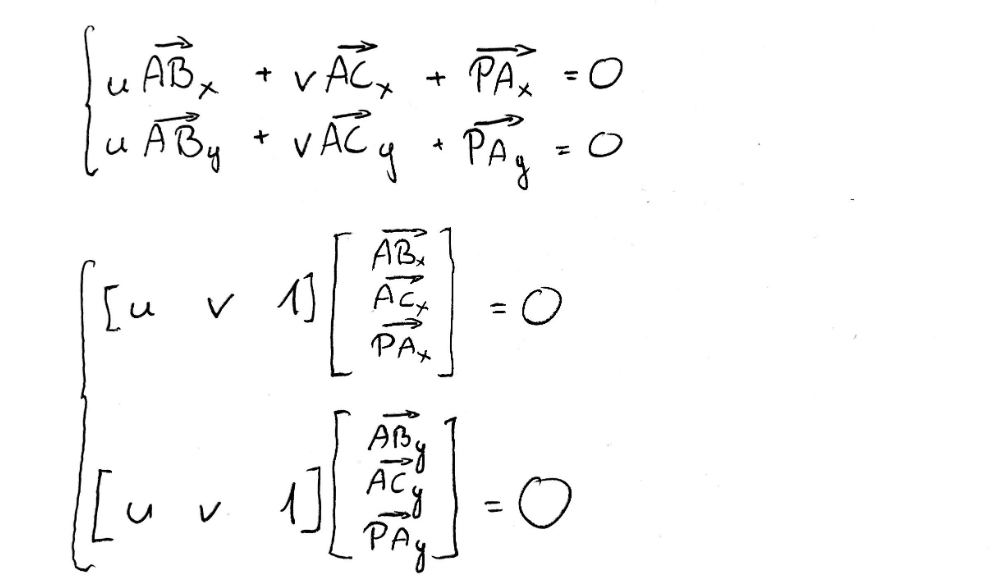 u AB⃗x + v AC⃗x + PA⃗x = 0
u AB⃗y + v AC⃗y + PA⃗y = 0
[u v 1] [AB⃗x
AC⃗x
PA⃗x] = 0
[u v 1] [AB⃗y
AC⃗y
PA⃗y] = 0